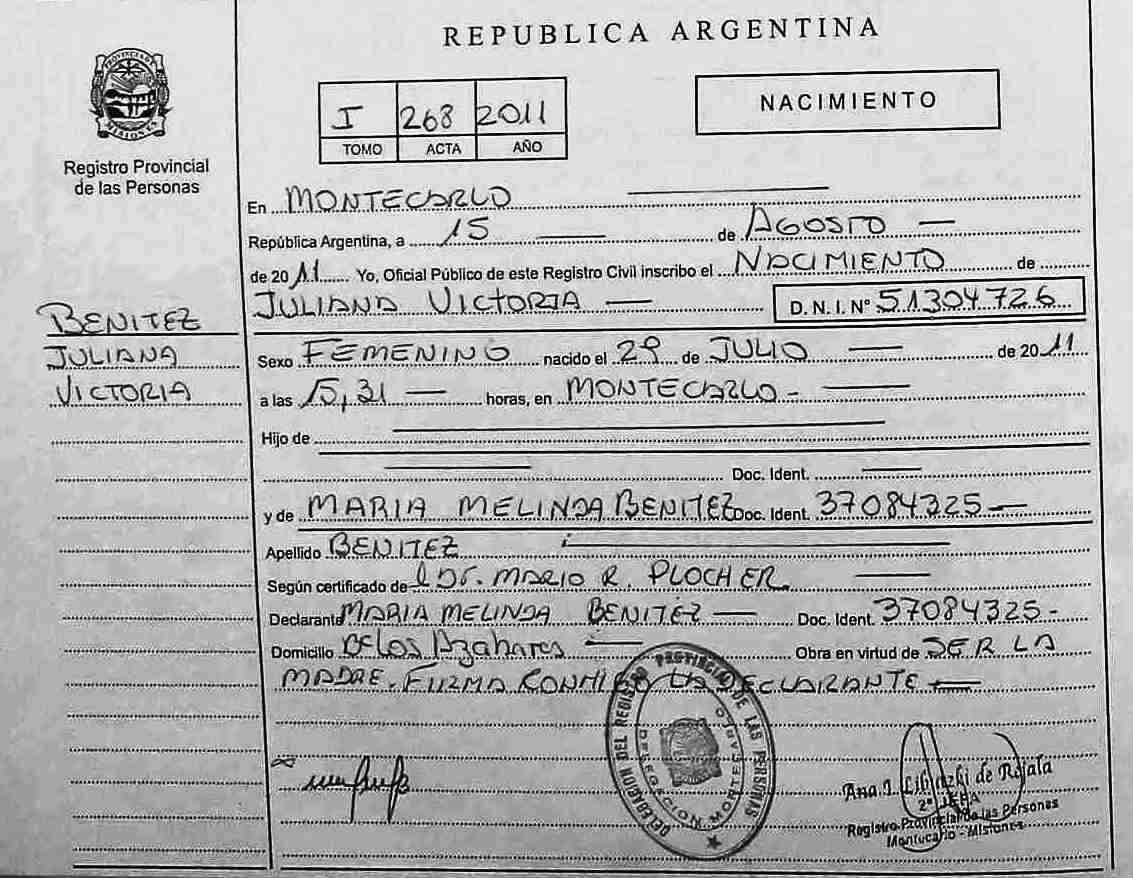 REPUBLICA ARGENTINA
PROVINCIA DE MISIONES
Registro Provincial
de las Personas
I 268 2011
TOMO ACTA AÑO
NACIMIENTO
En MONTECARLO
República Argentina, a 15 de AGOSTO
de 2011 Yo, Oficial Público de este Registro Civil inscribo el NACIMIENTO de
JULIANA VICTORIA D. N. I. N° 51304.726
BENITEZ
JULIANA
VICTORIA
Sexo FEMENINO nacido el 29 de JULIO de 2011
a las 15,31 horas, en MONTECARLO -
Hijo de
Doc. Ident.
y de MARIA MELINDA BENITEZ Doc. Ident. 37084325
Apellido BENITEZ
Según certificado de DR. MARIO R. PLOCHER
Declarante MARIA MELINDA BENITEZ Doc. Ident. 37084325-
Domicilio De los Azahares Obra en virtud de SER LA
MADRE. FIRMA CONMIGO LA DECLARANTE
DELEGACION DEL REGISTRO PROVINCIAL DE LAS PERSONAS
DELEGACION MONTECARLO
Ana de Rojala
2° JEFA
Registro Provincial de las Personas
Montecarlo - Misiones